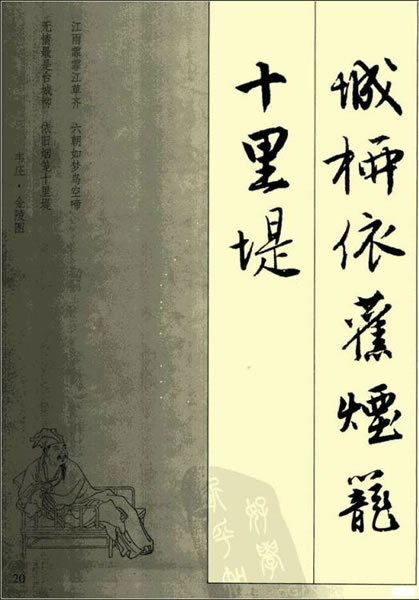 城柳依舊煙籠
十里堤
江雨霏霏江草齐 六朝如梦鸟空啼
无情最是台城柳 依旧烟笼十里堤
韦庄·金陵图
好学
20